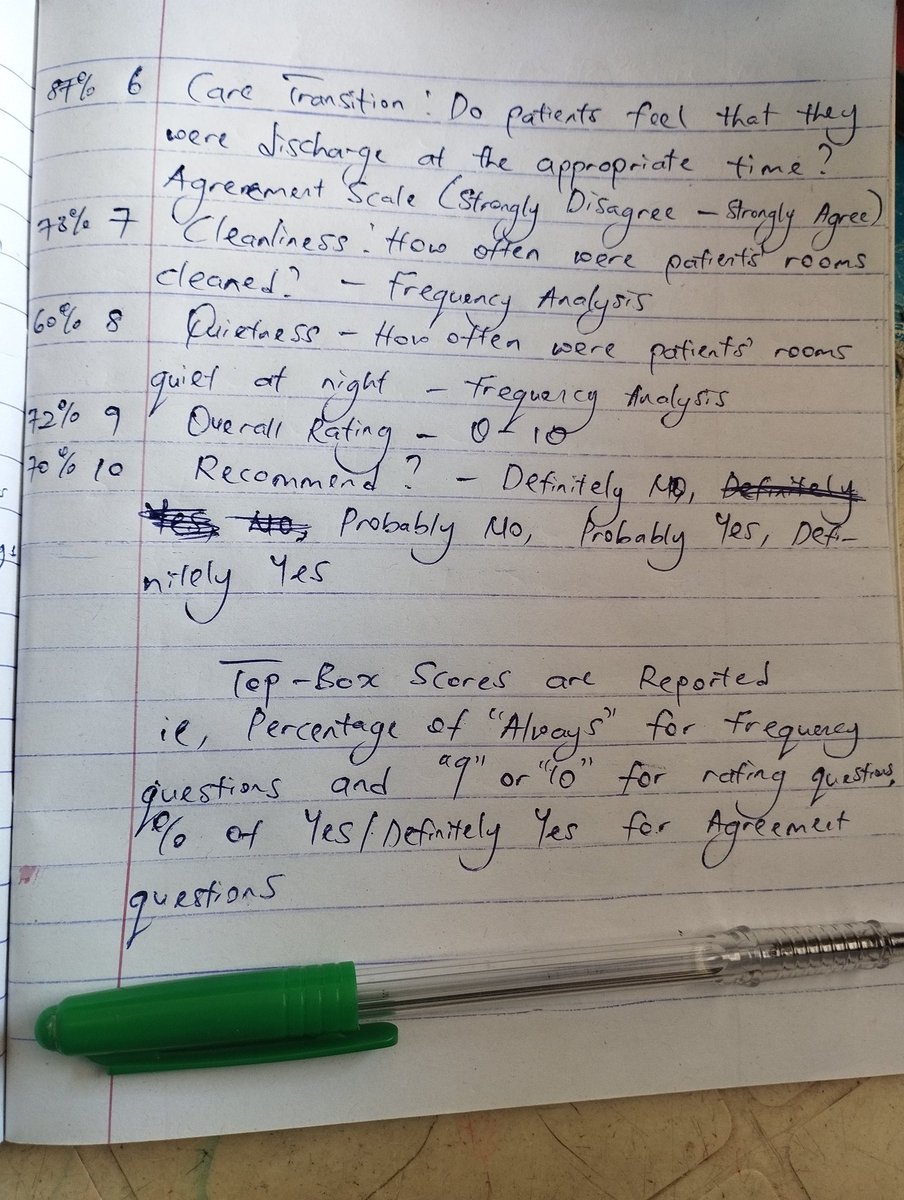 87% 6 Care Transition: Do patients feel that they
were discharge at the appropriate time?
Agreement Scale (Strongly Disagree - Strongly Agree)
73% 7 Cleanliness: How often were patients' rooms
cleaned? - Frequency Analysis
60% 8 Quietness - How often were patients' rooms
quiet at night - Frequency Analysis
72% 9 Overall Rating - 0 - 10
70% 10 Recommend? - Definitely No, Definitely
Yes, No, Probably No, Probably Yes, Defi-
nitely Yes
Top-Box Scores are Reported
ie, Percentage of "Always" for Frequency
questions and "9" or "10" for rating questions,
% of Yes/Definitely Yes for Agreement
questions